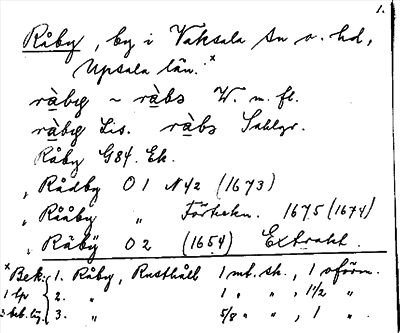 1.
Råby, by i Vaksala sn o. hd,
Upsala län.ˣ
ràby ~ ràbə W. m. fl.
ràby Lis. ràbə Sahlgr.
Råby G84. Ek.
„ Rådby O 1 N42 (1673)
„ Rååby „ Förteckn. 1675 (1674)
„ Råbÿ O 2 (1654) Extrakt.
ˣ Bek. 1. Råby, Rusthåll 1 mt. sk., 1 oförm.
1 tp 2. „ 1 „ „ , 1½ „
3 beb. lg. 3. „ 5/8 „ „ , 1 „